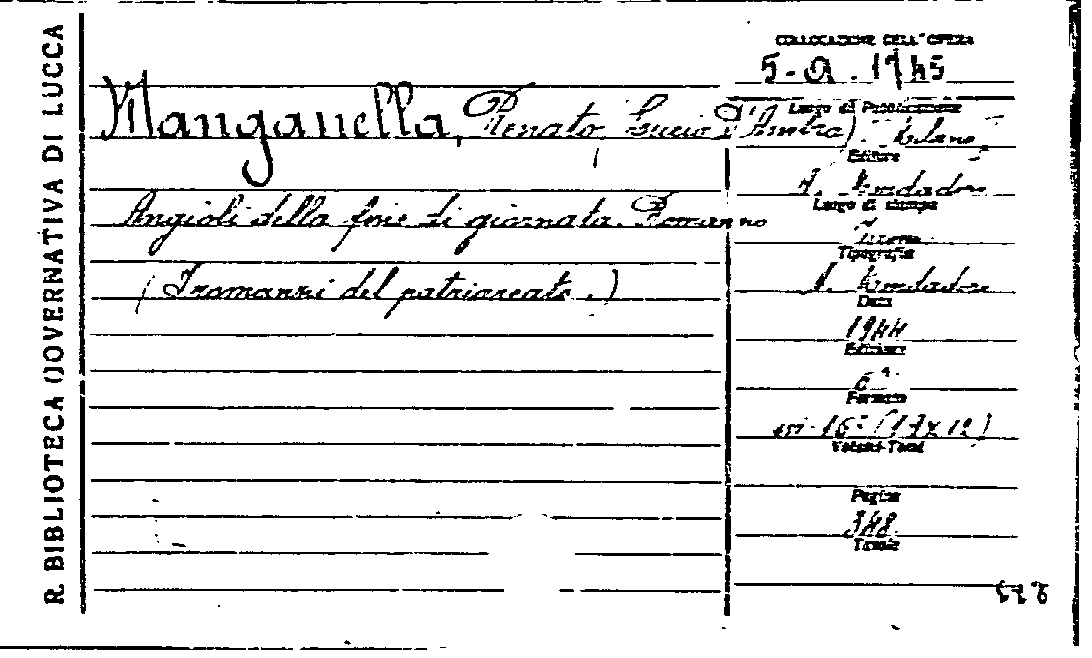 R. BIBLIOTECA GOVERNATIVA DI LUCCA
Manganella, Renato, Lucio D'Ambra)
Angioli della fine di giornata. Romanzo
(I romanzi del patriarcato.)
COLLOCAZIONE DELL'OPERA
5-a. 1745
Luogo di Pubblicazione
Milano
Editore
A. Mondadori
Luogo di stampa
Verona
Tipografia
A. Mondadori
Data
1944
Edizione
6ª.
Formato
in-16° (17x12)
Volumi-Tomi
Pagine
348
Tavole